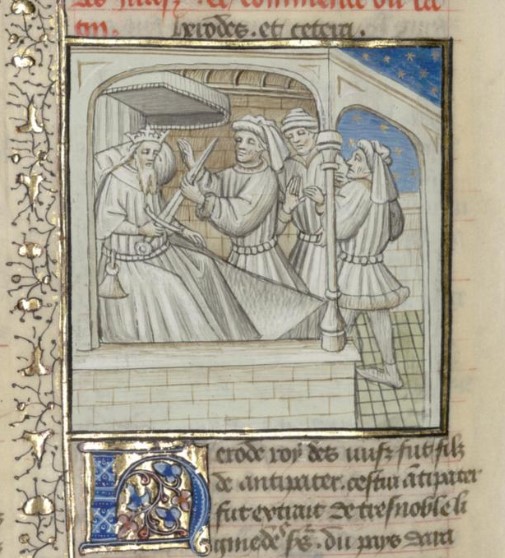 des juifz. Et commence ou la
tin. Herodes. et cetera.
Herode roy des iuifz fut filz
de antipater. cestui ātipater
fut extrait de tresnoble li
gniee des ꝭ. du pays dara